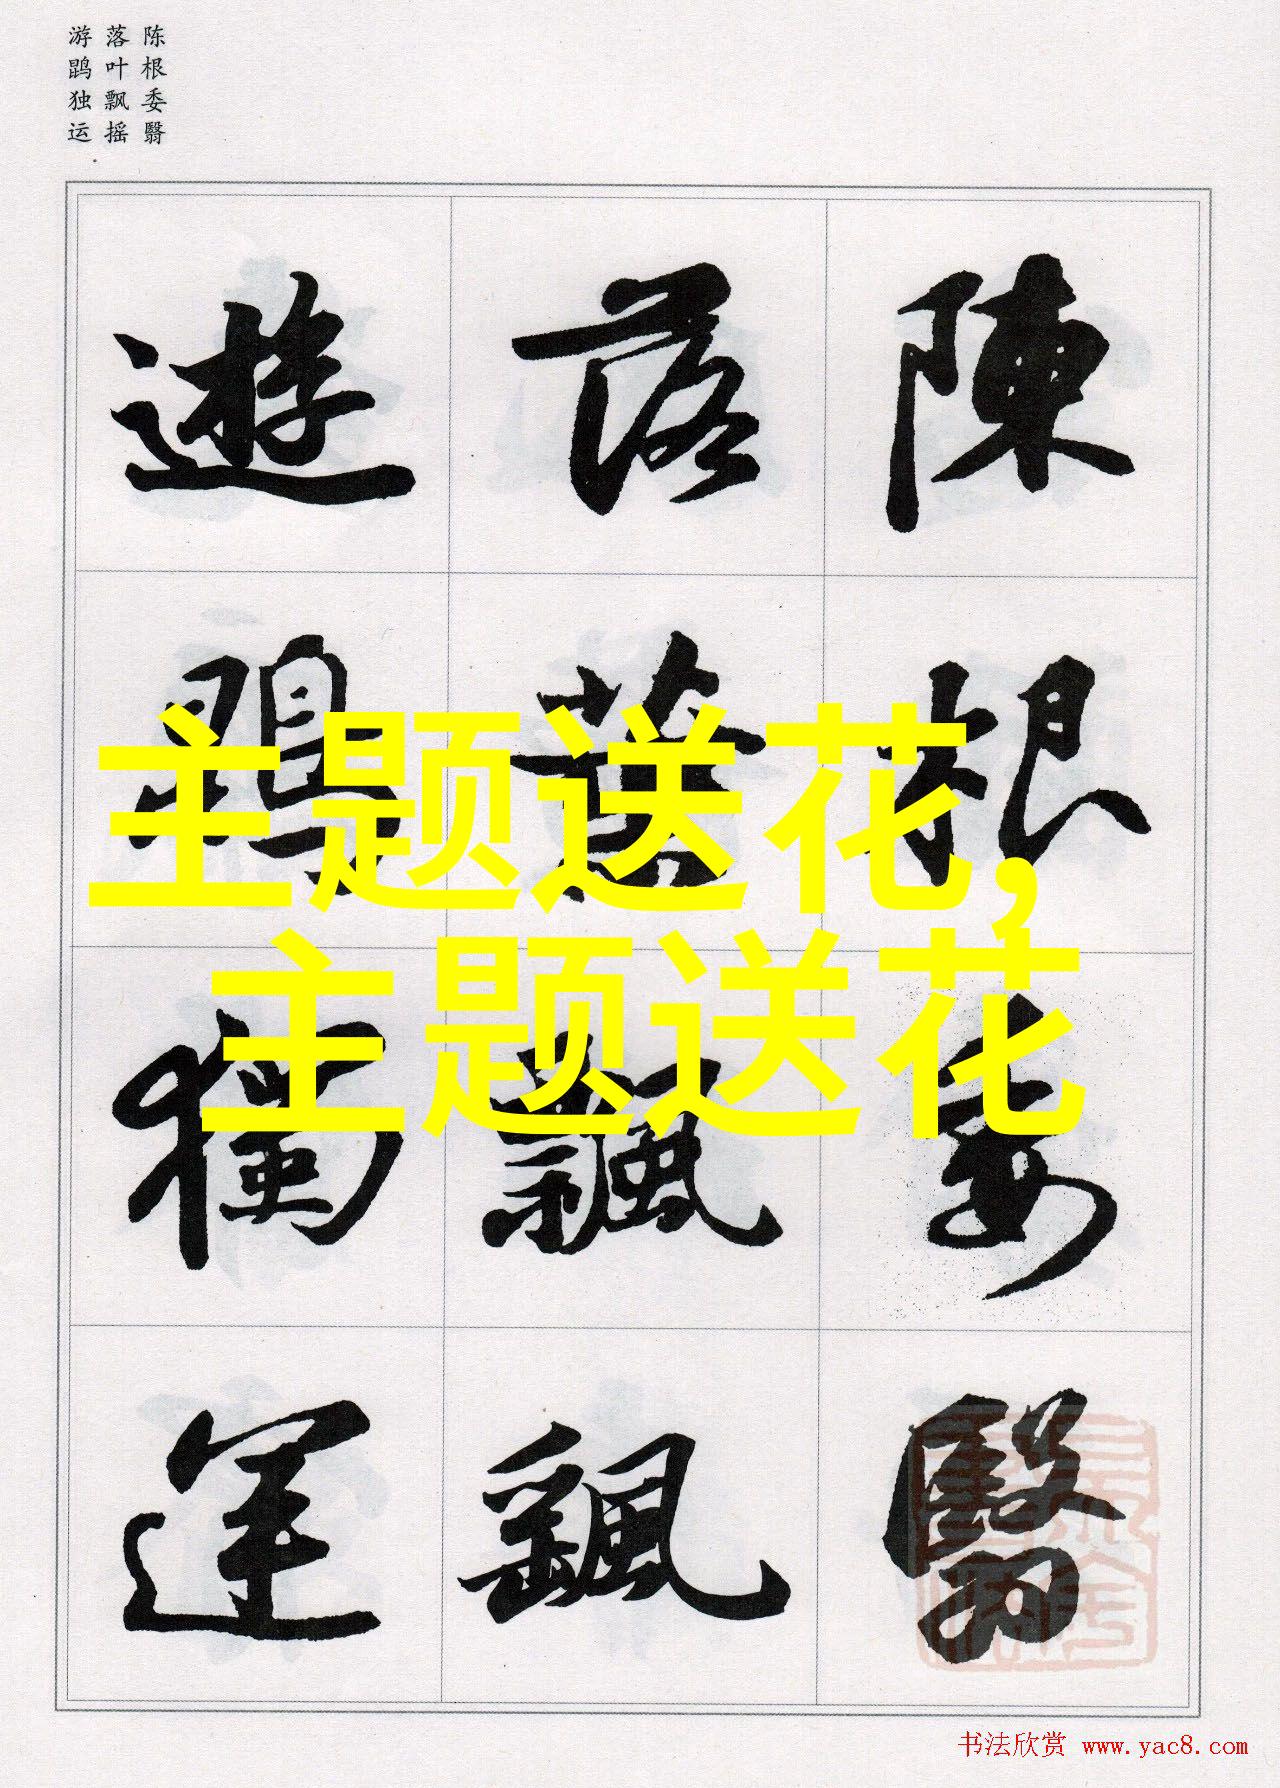 陈根委翳
落叶飘摇
游鹍独运
陳根委翳
落葉飄颻
遊鵾獨運
主题送花,
主题送花
书法欣赏 www.yac8.com